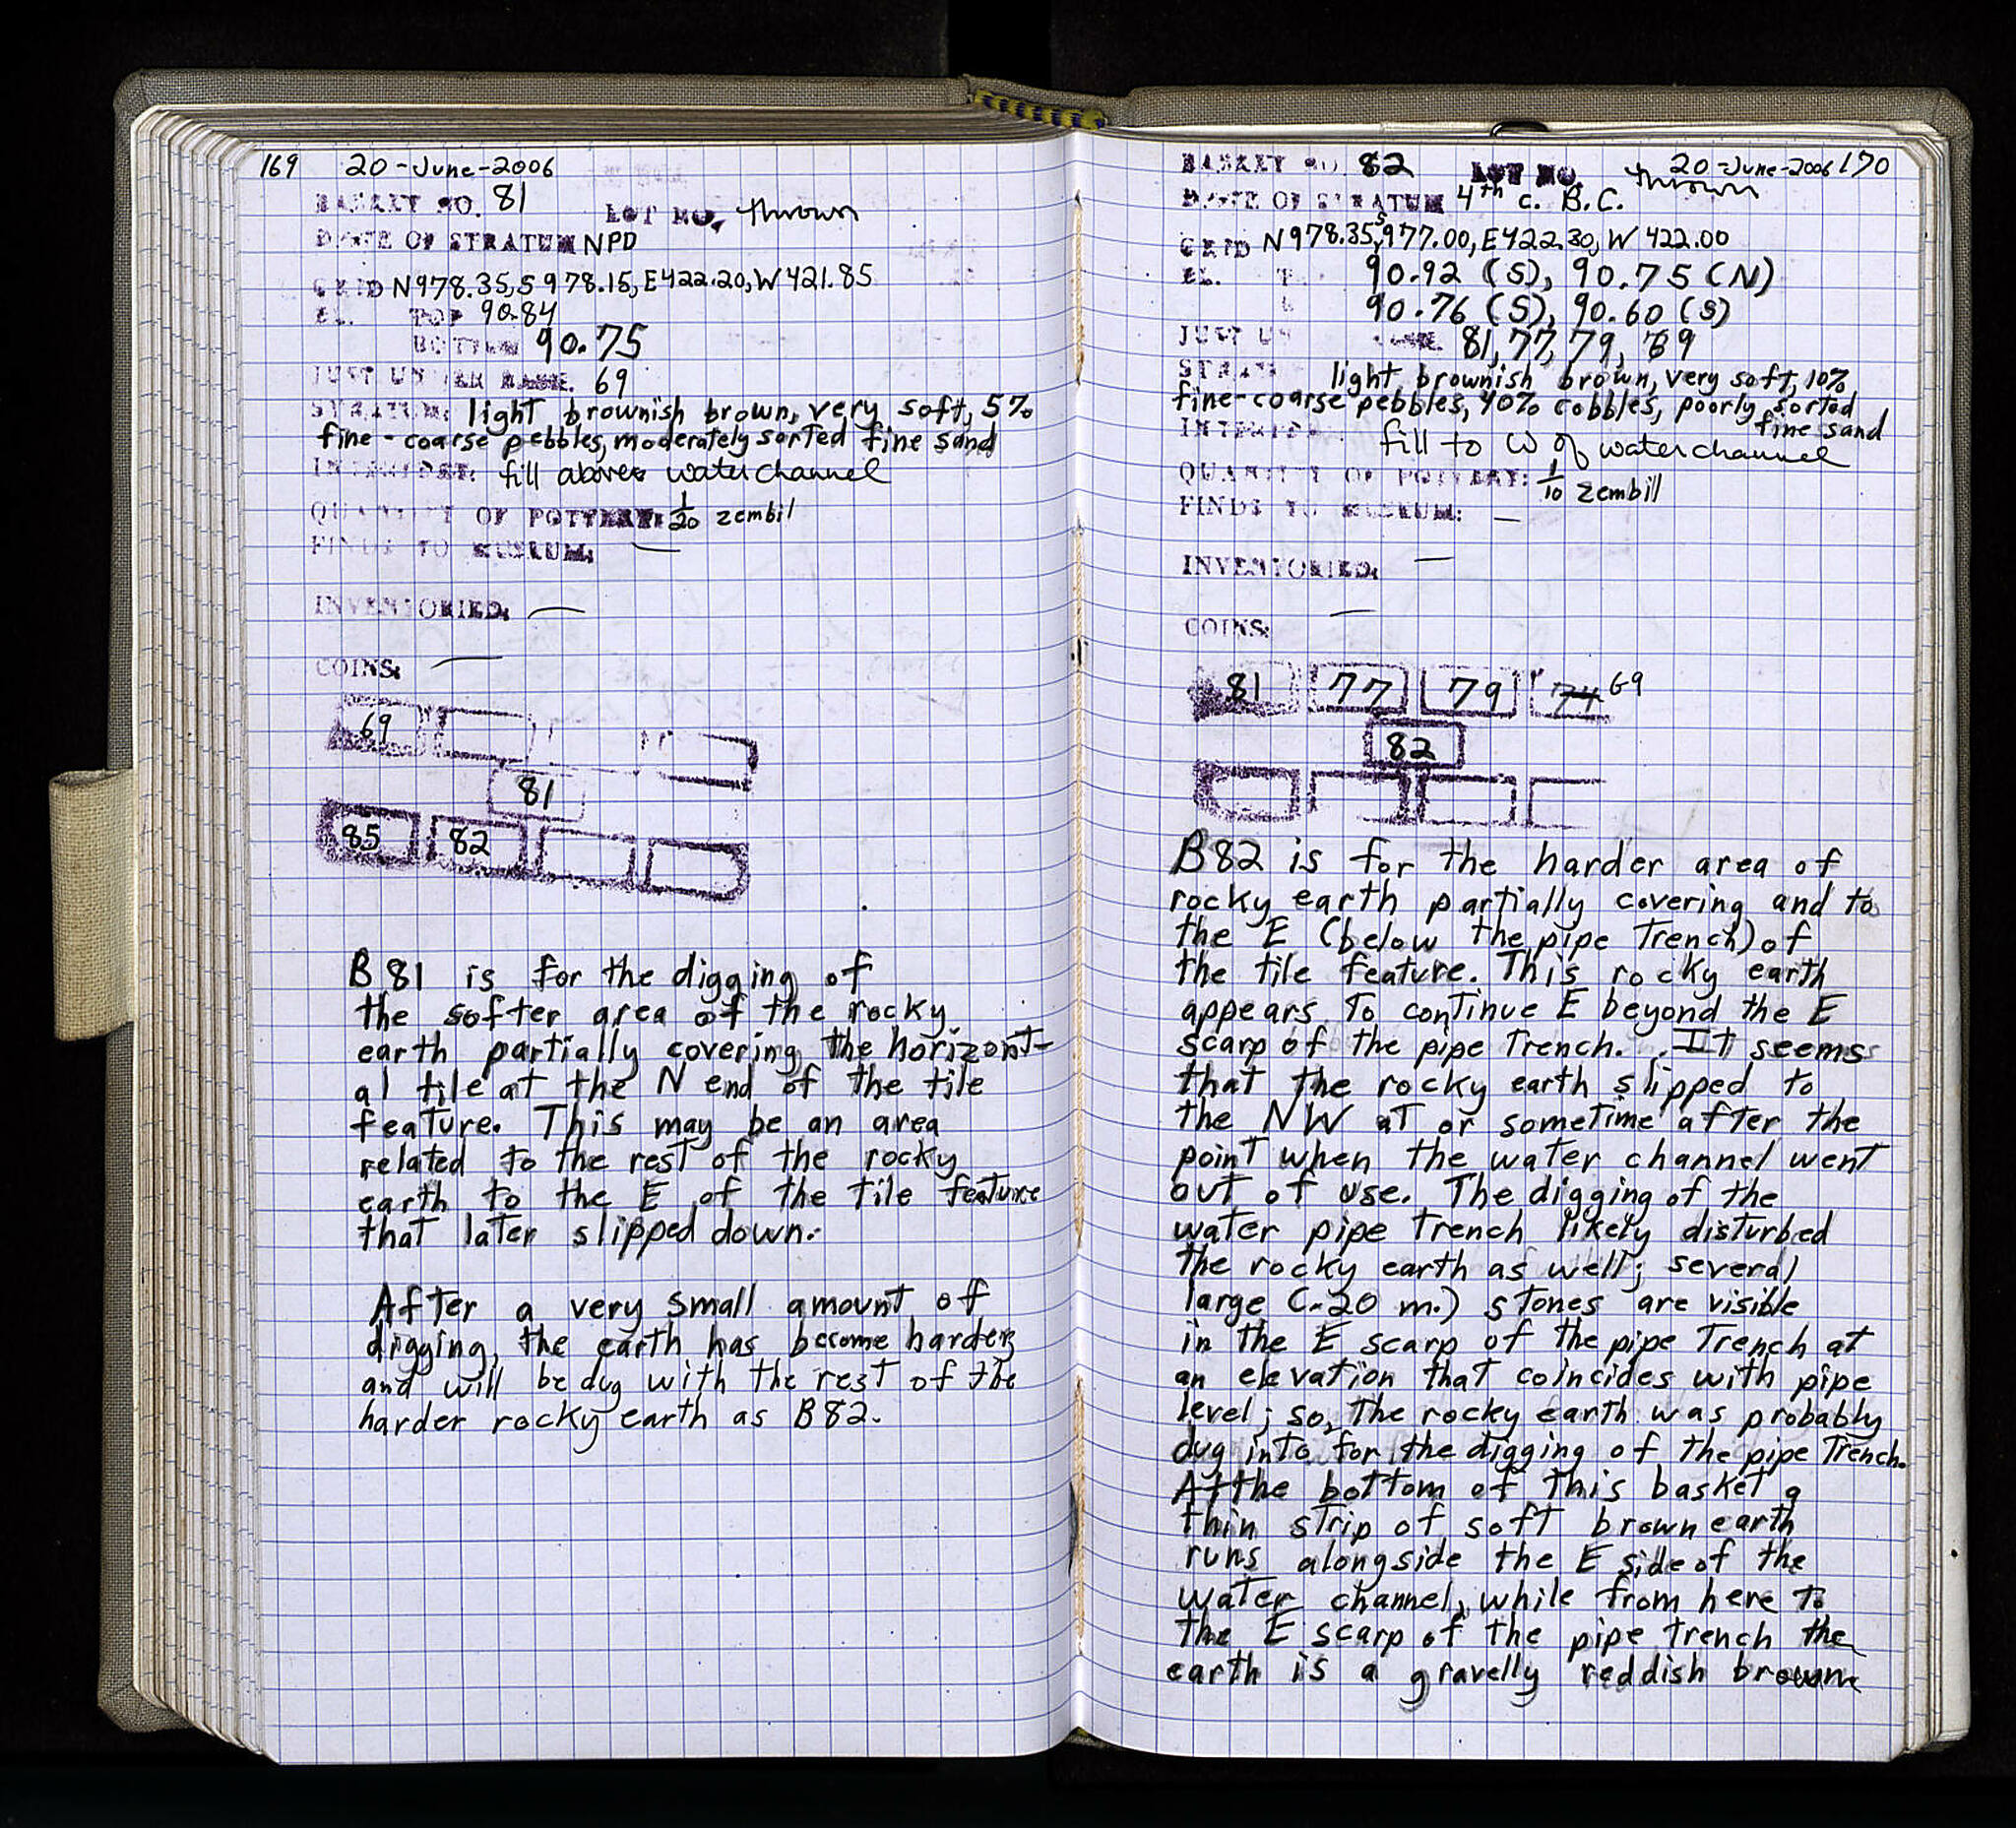 169 20-June-2006
BASKET NO. 81 LOT NO. thrown
DATE OF STRATUM NPD
GRID N978.35, S978.15, E422.20, W421.85
EL. TOP 90.84
BOTTOM 90.75
JUST UNDER BASK. 69
STRATUM: light brownish brown, very soft, 5%
fine-coarse pebbles, moderately sorted fine sand
INTERPRET: fill above waterchannel
QUANTITY OF POTTERY: 1/20 zembil
FINDS TO MUSEUM: —
INVENTORIED: —
COINS: —
69
81
85 82
B81 is for the digging of
the softer area of the rocky
earth partially covering the horizont-
al tile at the N end of the tile
feature. This may be an area
related to the rest of the rocky
earth to the E of the tile feature
that later slipped down.
After a very small amount of
digging, the earth has become harder
and will be dug with the rest of the
harder rocky earth as B82.
BASKET NO. 82 LOT NO. thrown 20-June-2006 170
DATE OF STRATUM 4th c. B.C.
GRID N978.35, S977.00, E422.30, W422.00
EL. T 90.92 (S), 90.75 (N)
90.76 (S), 90.60 (S)
JUST UN 81, 77, 79, 69
STRAT light brownish brown, very soft, 10%
fine-coarse pebbles, 40% cobbles, poorly sorted
fine sand
INTERPRE fill to W of waterchannel
QUANTITY OF POTTERY: 1/10 zembil
FINDS TO MUSEUM: —
INVENTORIED: —
COINS: —
81 77 79 74 69
82
B82 is for the harder area of
rocky earth partially covering and to
the E (below the pipe trench) of
the tile feature. This rocky earth
appears to continue E beyond the E
scarp of the pipe trench. It seems
that the rocky earth slipped to
the NW at or sometime after the
point when the water channel went
out of use. The digging of the
water pipe trench likely disturbed
the rocky earth as well; several
large (.20 m.) stones are visible
in the E scarp of the pipe trench at
an elevation that coincides with pipe
level; so, the rocky earth was probably
dug into for the digging of the pipe trench.
At the bottom of this basket a
thin strip of soft brown earth
runs alongside the E side of the
water channel, while from here to
the E scarp of the pipe trench the
earth is a gravelly reddish brown